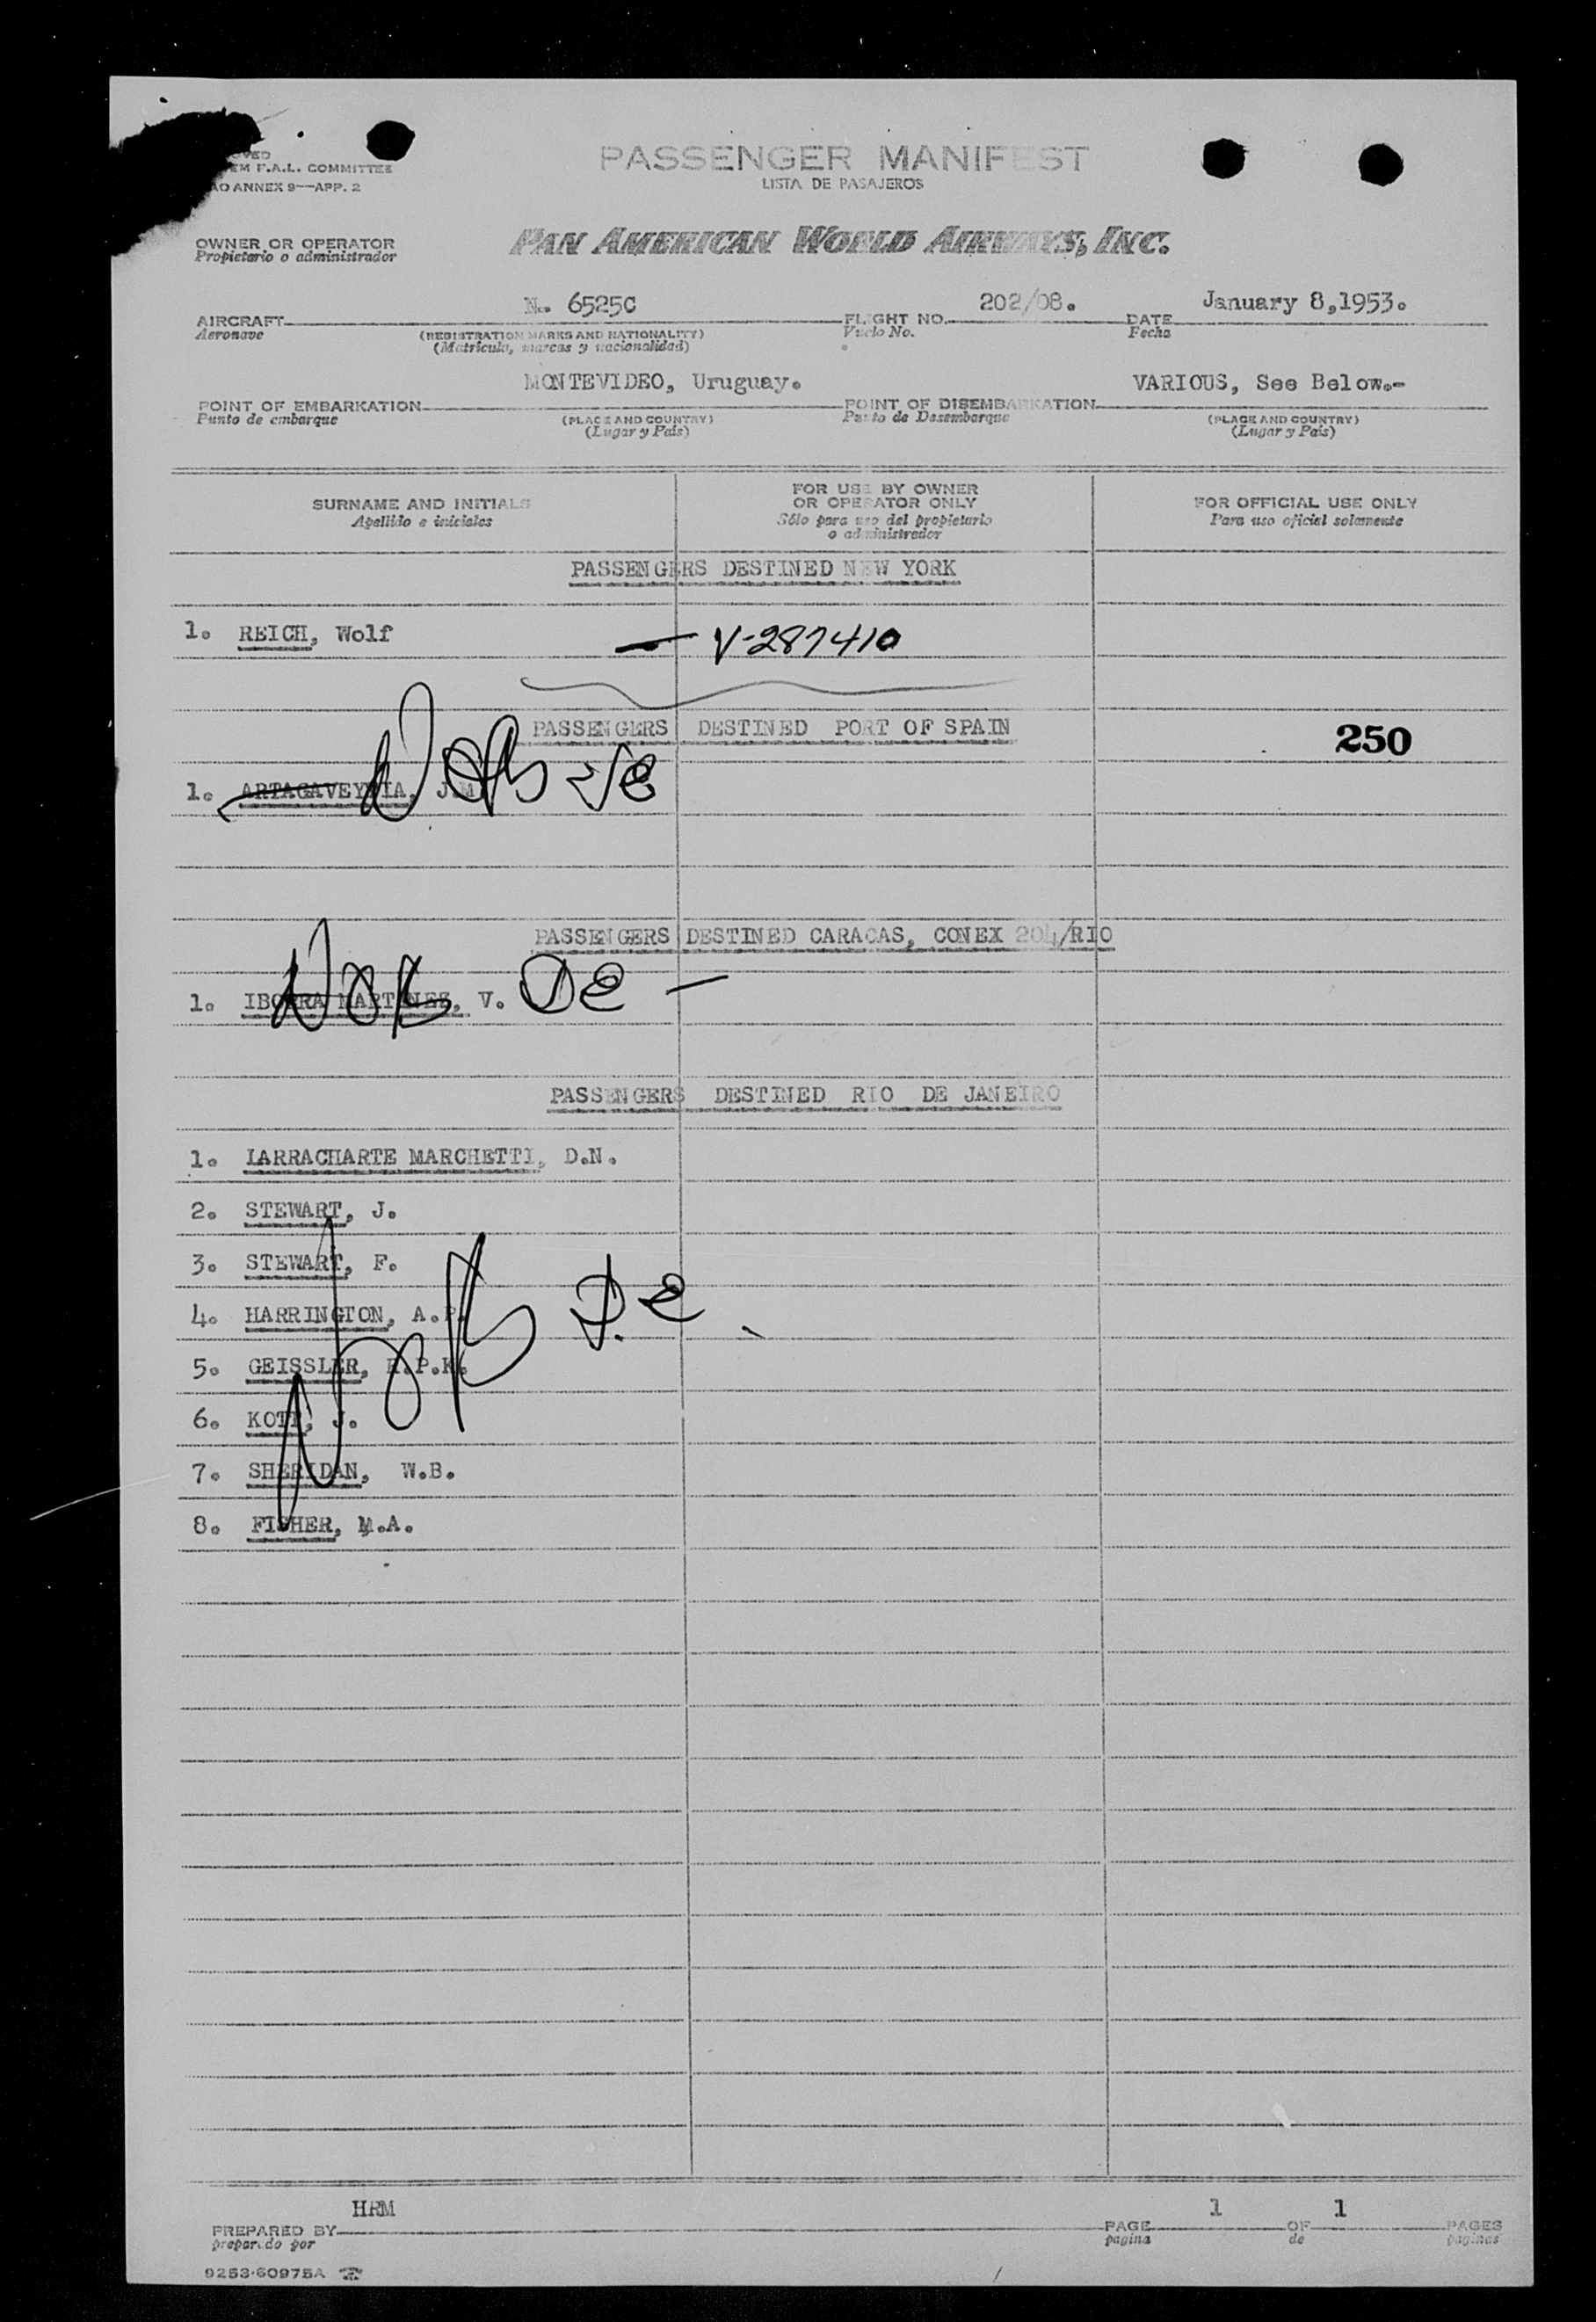 OVED
EM F.A.L. COMMITTEE
AO ANNEX 9—APP. 2
PASSENGER MANIFEST
LISTA DE PASAJEROS
OWNER OR OPERATOR
Propietario o administrador
PAN AMERICAN WORLD AIRWAYS, INC.
AIRCRAFT N. 6525C FLIGHT NO. 202/08. DATE January 8,1953.
Aeronave (REGISTRATION MARKS AND NATIONALITY) Vuelo No. Fecha
(Matricula, marcas y nacionalidad)
POINT OF EMBARKATION MONTEVIDEO, Uruguay. POINT OF DISEMBARKATION VARIOUS, See Below.-
Punto de embarque (PLACE AND COUNTRY) Punto de Desembarque (PLACE AND COUNTRY)
(Lugar y País) (Lugar y País)
SURNAME AND INITIALS
Apellido e iniciales
FOR USE BY OWNER
OR OPERATOR ONLY
Sólo para uso del propietario
o administrador
FOR OFFICIAL USE ONLY
Para uso oficial solamente
PASSENGERS DESTINED NEW YORK
1. REICH, Wolf — V-287410
PASSENGERS DESTINED PORT OF SPAIN
250
1. ARTAGAVEYTIA, J.M.
PASSENGERS DESTINED CARACAS, CONEX 204/RIO
1. IBORRA MARTINEZ, V.
PASSENGERS DESTINED RIO DE JANEIRO
1. LARRACHARTE MARCHETTI, D.N.
2. STEWART, J.
3. STEWART, F.
4. HARRINGTON, A.
5. GEISSLER, .P.K.
6. J.
7. SHERIDAN, W.B.
8. FISHER, M.A.
HRM
PREPARED BY
preparado por
PAGE 1 OF 1 PAGES
pagina de paginas
9253-60975A